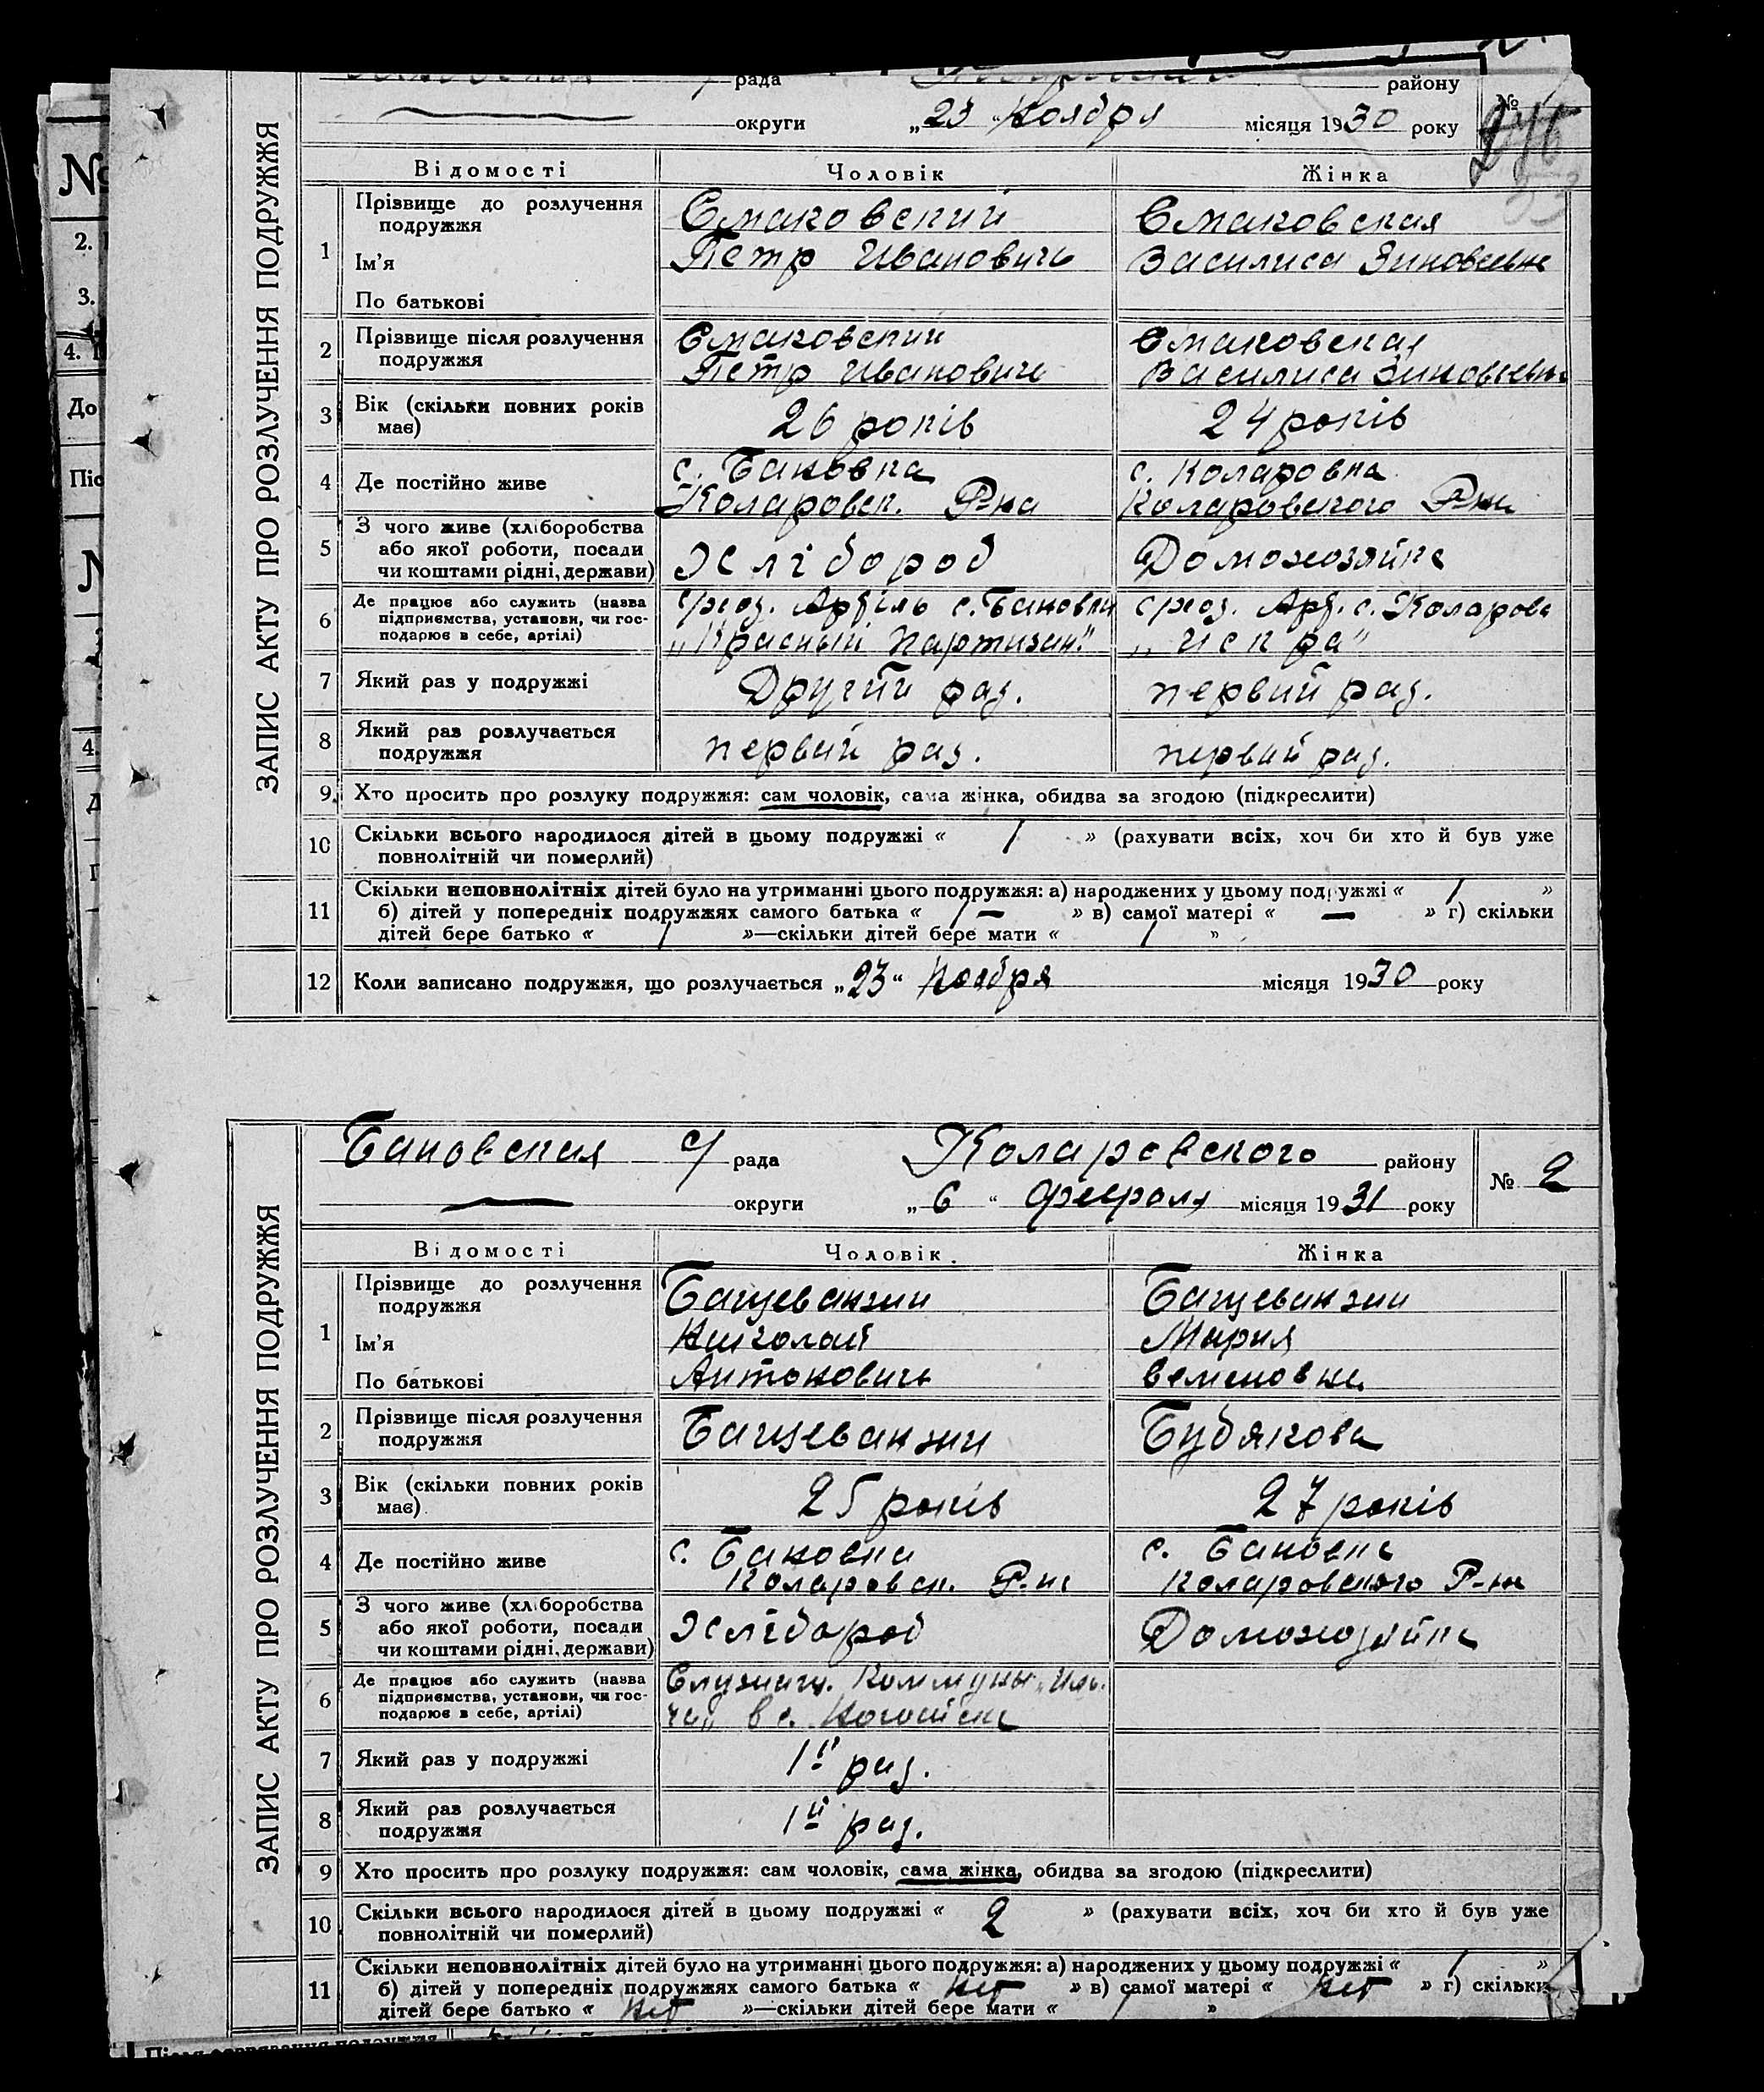 рада району
округи „23 “ Ноября місяця 1930 року №
Відомості Чоловік Жінка
ЗАПИС АКТУ ПРО РОЗЛУЧЕННЯ ПОДРУЖЖЯ
1 Прізвище до розлучення подружжя Смаковский Смаковская
Ім'я Петр Ивановичь Василиса Зиновевне
По батькові
2 Прізвище після розлучення Смаковский Смаковская
подружжя Петр Ивановичь Василиса
3 Вік (скільки повних років має) 26 років 24 років
4 Де постійно живе с. Бановка с. Коларовка
Коларовск. Р-на Коларовского Р-на
5 З чого живе (хліборобства
або якої роботи, посади
чи коштами рідні, держави) Хлібороб Домохозяйка
6 Де працює або служить (назва с/хоз. Артіль с. Бановки с/хоз. Арт. с. Коларовк
підприємства, установи, чи гос-
подарює в себе, артілі) „Красный Партизан." „Искра"
7 Який раз у подружжі Другий раз. первий раз.
8 Який раз розлучається
подружжя первий раз. первий раз.
9 Хто просить про розлуку подружжя: сам чоловік, сама жінка, обидва за згодою (підкреслити)
10 Скільки всього народилося дітей в цьому подружжі « 1 » (рахувати всіх, хоч би хто й був уже
повнолітній чи померлий)
11 Скільки неповнолітніх дітей було на утриманні цього подружжя: а) народжених у цьому подружжі « 1 »
б) дітей у попередніх подружжях самого батька « — » в) самої матері « — » г) скільки
дітей бере батько « / »—скільки дітей бере мати « 1 »
12 Коли записано подружжя, що розлучається „23“ Ноября місяця 1930 року
Бановская с/ рада Коларовского району
округи „ 6 “ февраля місяця 1931 року № 2
Відомості Чоловік. Жінка
ЗАПИС АКТУ ПРО РОЗЛУЧЕННЯ ПОДРУЖЖЯ
1 Прізвище до розлучення
подружжя Бащеванжии Бащеванжии
Ім'я Николай Мария
По батькові Антоновичь Семеновна
2 Прізвище після розлучення
подружжя Бащеванжии Будякова
3 Вік (скільки повних років
має) 25 років 27 років
4 Де постійно живе с. Бановка с. Бановка
Коларовск. Р-на Коларовского Р-на
5 З чого живе (хліборобства
або якої роботи, посади
чи коштами рідні, держави) Хлібороб Домохозяйка
6 Де працює або служить (назва Коммуны
підприємства, установи, чи гос-
подарює в себе, артілі) в с.
7 Який раз у подружжі 1й раз.
8 Який раз розлучається
подружжя 1й раз.
9 Хто просить про розлуку подружжя: сам чоловік, сама жінка, обидва за згодою (підкреслити)
10 Скільки всього народилося дітей в цьому подружжі « 2 » (рахувати всіх, хоч би хто й був уже
повнолітній чи померлий)
11 Скільки неповнолітніх дітей було на утриманні цього подружжя: а) народжених у цьому подружжі « 1 »
б) дітей у попередніх подружжях самого батька « нет » в) самої матері « нет » г) скільки
дітей бере батько « нет »—скільки дітей бере мати « 1 »